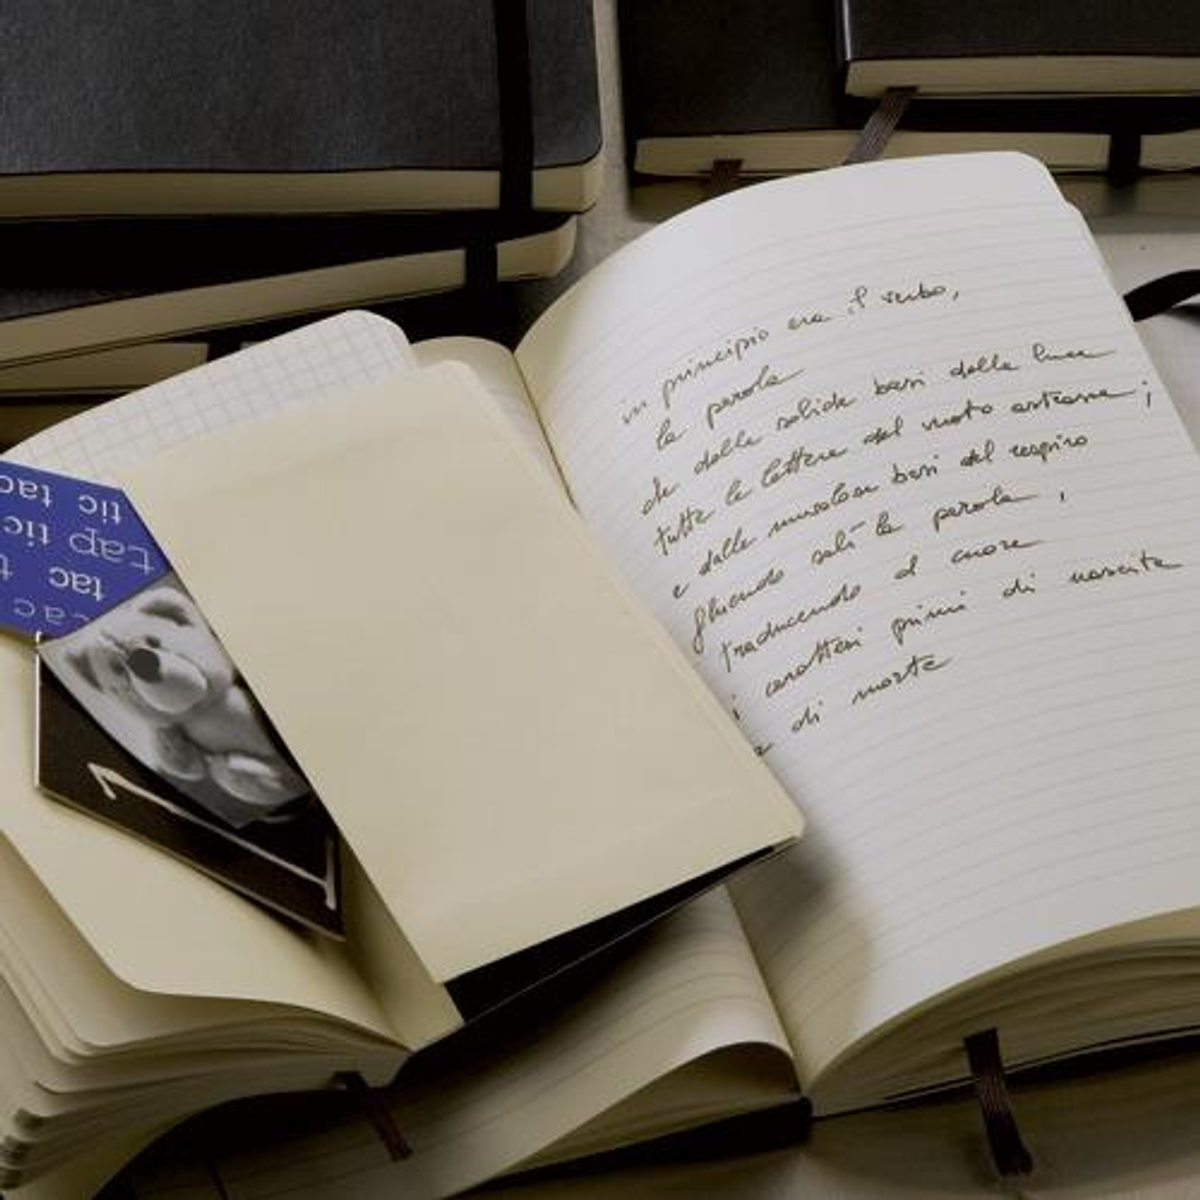 tic tac
tap tic tic
tac t
tac
in principio era il verbo,
la parola
che dalle solide basi della luce
tutte le lettere del vuoto astrasse;
e dalle nuvolose basi del respiro
fluendo salì la parola,
traducendo al cuore
i caratteri primi di nascita
e di morte